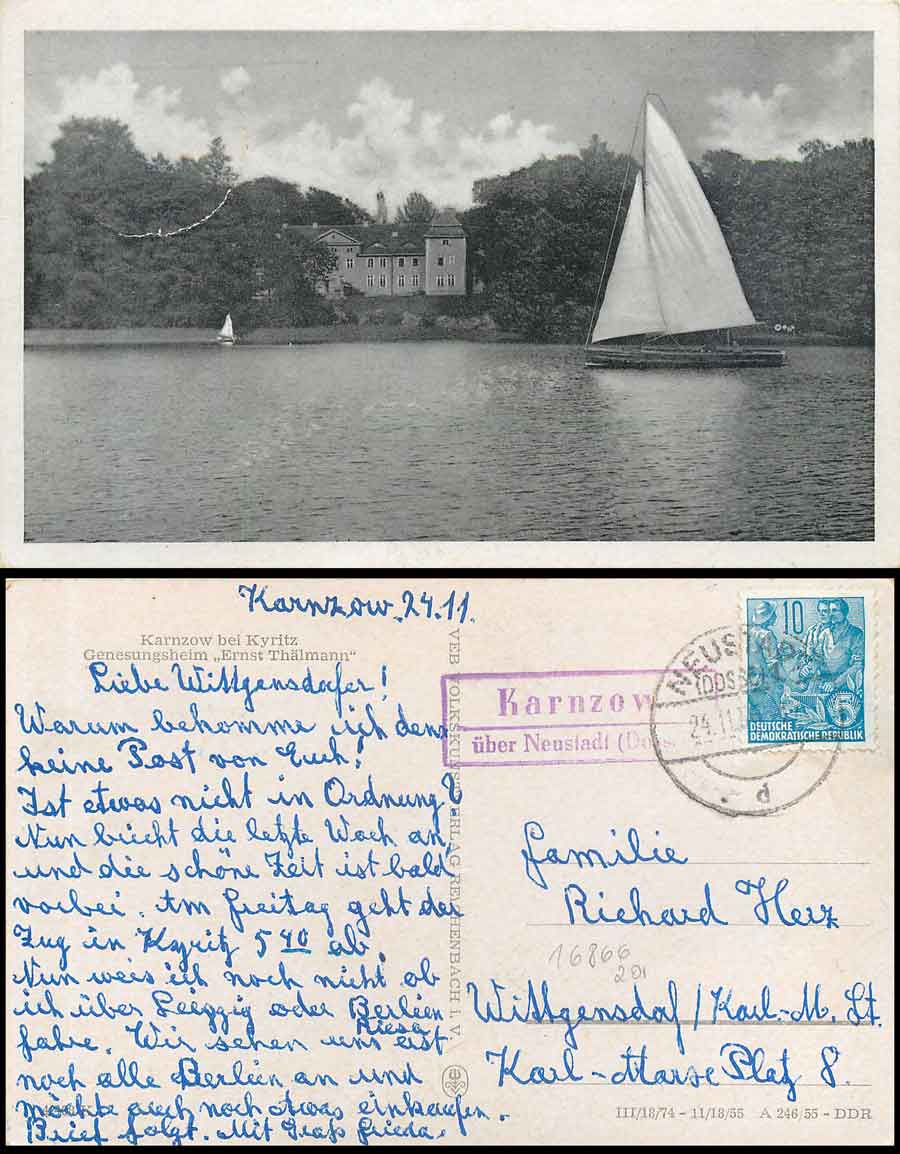 Karnzow 24.11.
Karnzow bei Kyritz
Genesungsheim „Ernst Thälmann“
Liebe Wittgensdafer!
Warum bekomme ich denn
keine Post von Euch!
Ist etwas nicht in Ordnung?
Nun bricht die letzte Woch an,
und die schöne Zeit ist bald
vorbei. Am Freitag geht der
Zug in Kyritz 5 40 ab.
Nun weis ich noch nicht, ob
ich über Leipzig oder Berlin
Riesa
fahre. Wir sehen uns erst
noch alle Berlin an und
möchte auch noch etwas einkaufen.
Brief folgt. Mit Gruß Frieda.
VEB VOLKSKUNSTVERLAG REICHENBACH I. V.
Karnzow
über Neustadt (Dosse
NEUSTADT
(DOSSE)
24.11.
d
10
5
DEUTSCHE
DEMOKRATISCHE REPUBLIK
Familie
Richard Herz
16866
201
Wittgensdaf/Karl-M. St.
Karl-Marse Platz 8.
III/18/74 - 11/18/55 A 246/55 - DDR